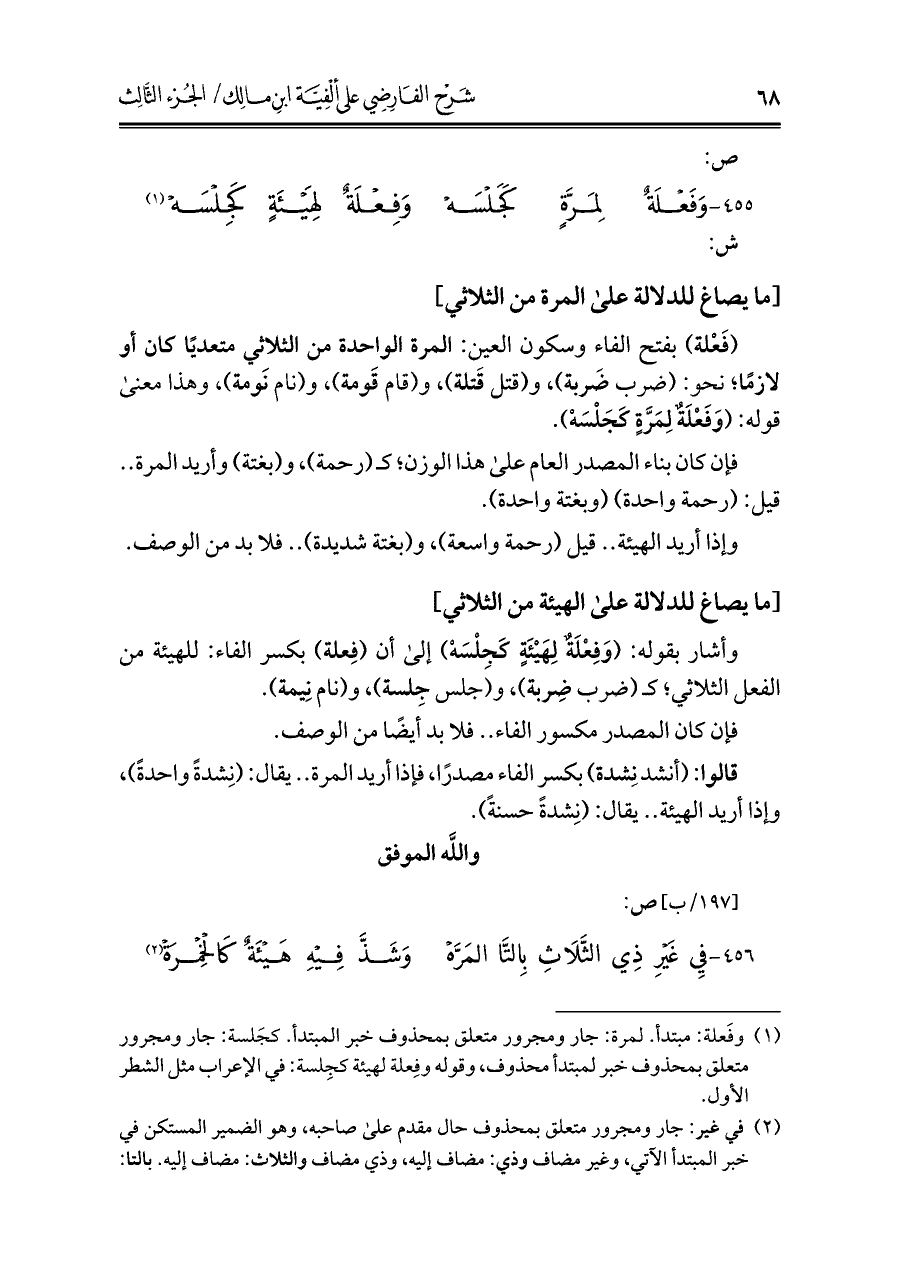 ٦٨ شَرْح الفَارِضِي عَلى أَلْفِيَّة ابنِ مَالِك/ الجُزء الثَّالِث
ص:
٤٥٥-وَفَعْـلَةٌ لِمَـرَّةٍ كَجَلْسَـهْ وَفِـعْـلَةٌ لِهَيْـئَةٍ كَجِلْسَـهْ(١)
ش:
[ما يصاغ للدلالة علىٰ المرة من الثلاثي]
(فَعْلة) بفتح الفاء وسكون العين: المرة الواحدة من الثلاثي متعديًا كان أو
لازمًا؛ نحو: (ضرب ضَربة)، و(قتل قَتلة)، و(قام قَومة)، و(نام نَومة)، وهذا معنىٰ
قوله: (وَفَعْلَةٌ لِمَرَّةٍ كَجَلْسَهْ).
فإن كان بناء المصدر العام علىٰ هذا الوزن؛ كـ (رحمة)، و(بغتة) وأريد المرة..
قيل: (رحمة واحدة) (وبغتة واحدة).
وإذا أريد الهيئة.. قيل (رحمة واسعة)، و(بغتة شديدة).. فلا بد من الوصف.
[ما يصاغ للدلالة علىٰ الهيئة من الثلاثي]
وأشار بقوله: (وَفِعْلَةٌ لِهَيْئَةٍ كَجِلْسَهْ) إلىٰ أن (فِعلة) بكسر الفاء: للهيئة من
الفعل الثلاثي؛ كـ (ضرب ضِربة)، و(جلس جِلسة)، و(نام نِيمة).
فإن كان المصدر مكسور الفاء.. فلا بد أيضًا من الوصف.
قالوا: (أنشد نِشدة) بكسر الفاء مصدرًا، فإذا أريد المرة.. يقال: (نِشدةً واحدةً)،
وإذا أريد الهيئة.. يقال: (نِشدةً حسنةً).
واللَّه الموفق
[١٩٧/ب] ص:
٤٥٦-فِي غَيْرِ ذِي الثَّلَاثِ بِالتَّا المَرَّهْ وَشَـذَّ فِـيْهِ هَـيْئَةٌ كَالخِمْـرَهْ(٢)
(١) وفَعلة: مبتدأ. لمرة: جار ومجرور متعلق بمحذوف خبر المبتدأ. كجَلسة: جار ومجرور
متعلق بمحذوف خبر لمبتدأ محذوف، وقوله وفِعلة لهيئة كجِلسة: في الإعراب مثل الشطر
الأول.
(٢) في غير: جار ومجرور متعلق بمحذوف حال مقدم علىٰ صاحبه، وهو الضمير المستكن في
خبر المبتدأ الآتي، وغير مضاف وذي: مضاف إليه، وذي مضاف والثلاث: مضاف إليه. بالتا: